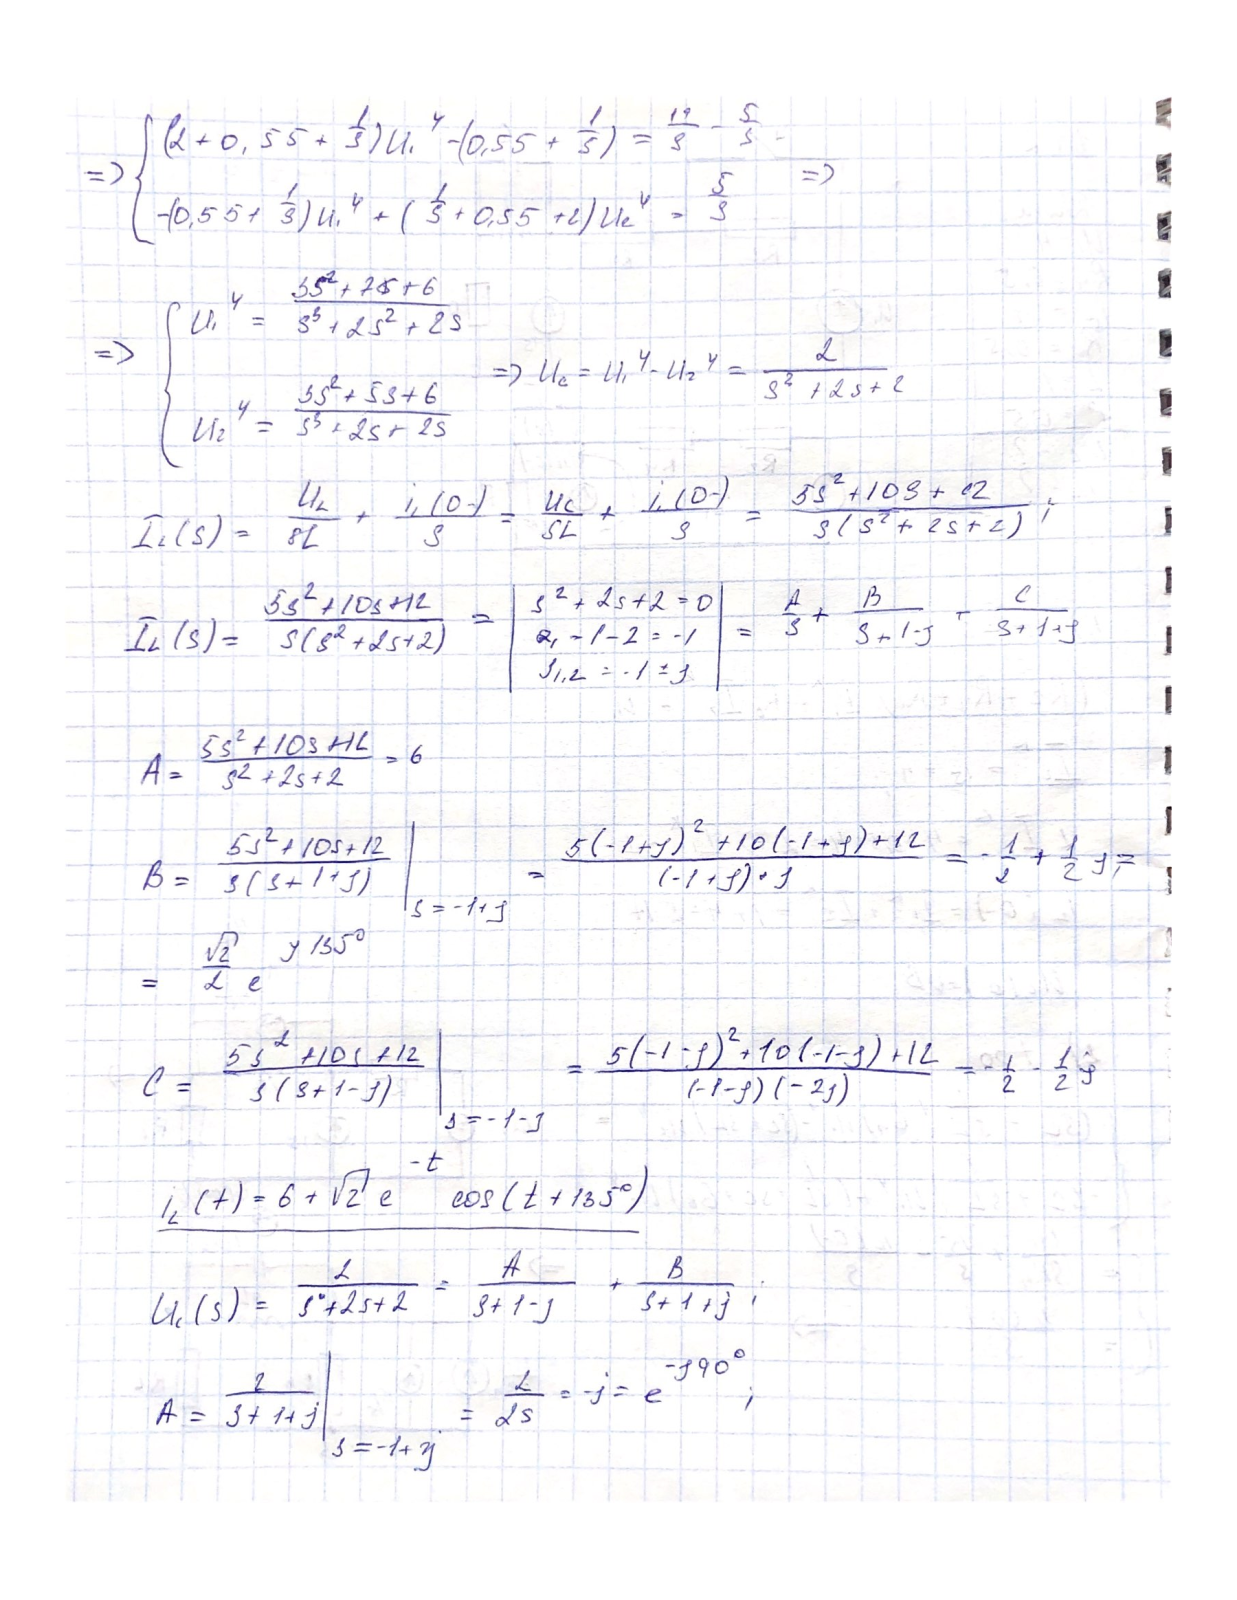 => { (2 + 0,5s + 1/s) U₁ᴵ⁄ - (0,5s + 1/s) = 19/s - 5/s
-(0,5s + 1/s) U₁ᴵ⁄ + (1/s + 0,5s + 2) U₂ᴵ⁄ = 5/s =>
=> { U₁ᴵ⁄ = (5s² + 7s + 6)/(s³ + 2s² + 2s)
U₂ᴵ⁄ = (5s² + 5s + 6)/(s³ + 2s + 2s) => Uc = U₁ᴵ⁄ - U₂ᴵ⁄ = 2/(s² + 2s + 2)
I_L(s) = U_L/sL + i_L(0-)/s = Uc/sL + i_L(0-)/s = (5s² + 10s + 12)/(s(s² + 2s + 2)) ;
I_L(s) = (5s² + 10s + 12)/(s(s² + 2s + 2)) = | s² + 2s + 2 = 0 | = A/s + B/(s + 1 - j) + C/(s + 1 + j)
- 1 - 2 = -1
s₁,₂ = -1 ± j
A = (5s² + 10s + 12)/(s² + 2s + 2) = 6
B = (5s² + 10s + 12)/(s(s + 1 + j)) | s = -1 + j = (5(-1 + j)² + 10(-1 + j) + 12)/((-1 + j) · j) = -1/2 + 1/2 j =
= √2/2 e^(j135°)
C = (5s² + 10s + 12)/(s(s + 1 - j)) | s = -1 - j = (5(-1 - j)² + 10(-1 - j) + 12)/((-1 - j)(-2j)) = -1/2 - 1/2 j
i_L(t) = 6 + √2 e^(-t) cos(t + 135°)
Uc(s) = 2/(s² + 2s + 2) = A/(s + 1 - j) + B/(s + 1 + j) ;
A = 2/(s + 1 + j) | s = -1 + j = 2/2s = -j = e^(-j90°) ;